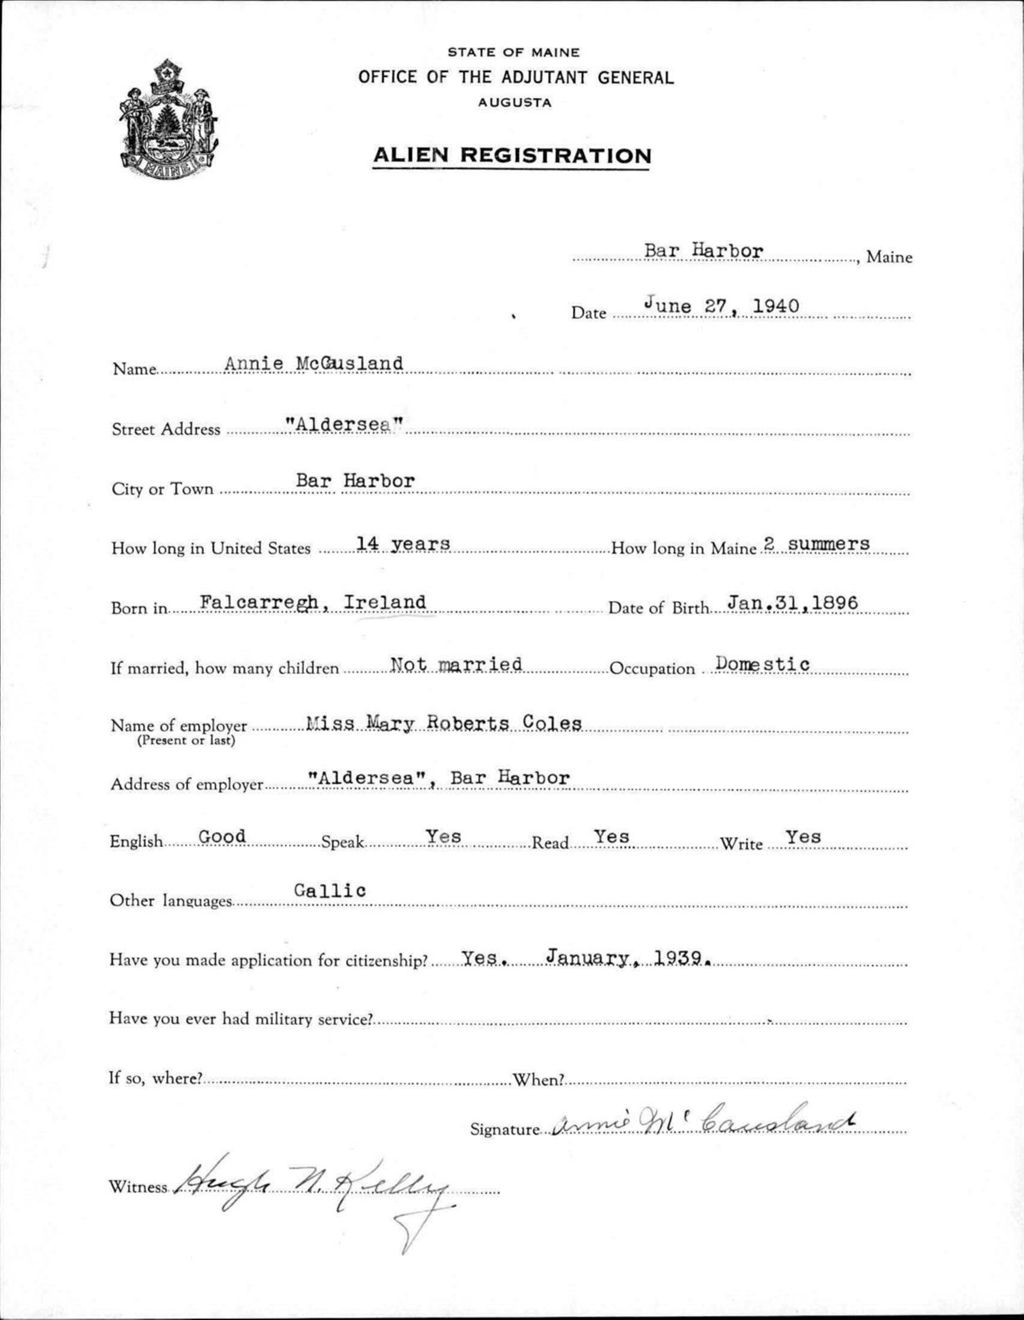 STATE OF MAINE
OFFICE OF THE ADJUTANT GENERAL
AUGUSTA
ALIEN REGISTRATION
MAINE
Bar Harbor, Maine
Date June 27, 1940
Name Annie McCusland
Street Address "Aldersea"
City or Town Bar Harbor
How long in United States 14 years How long in Maine 2 summers
Born in Falcarregh, Ireland Date of Birth Jan.31,1896
If married, how many children Not married Occupation Domestic
Name of employer Miss Mary Roberts Coles
(Present or last)
Address of employer "Aldersea", Bar Harbor
English Good Speak Yes Read Yes Write Yes
Other languages Gallic
Have you made application for citizenship? Yes. January, 1939.
Have you ever had military service?
If so, where? When?
Signature Annie McCausland
Witness Hugh N. Kelly